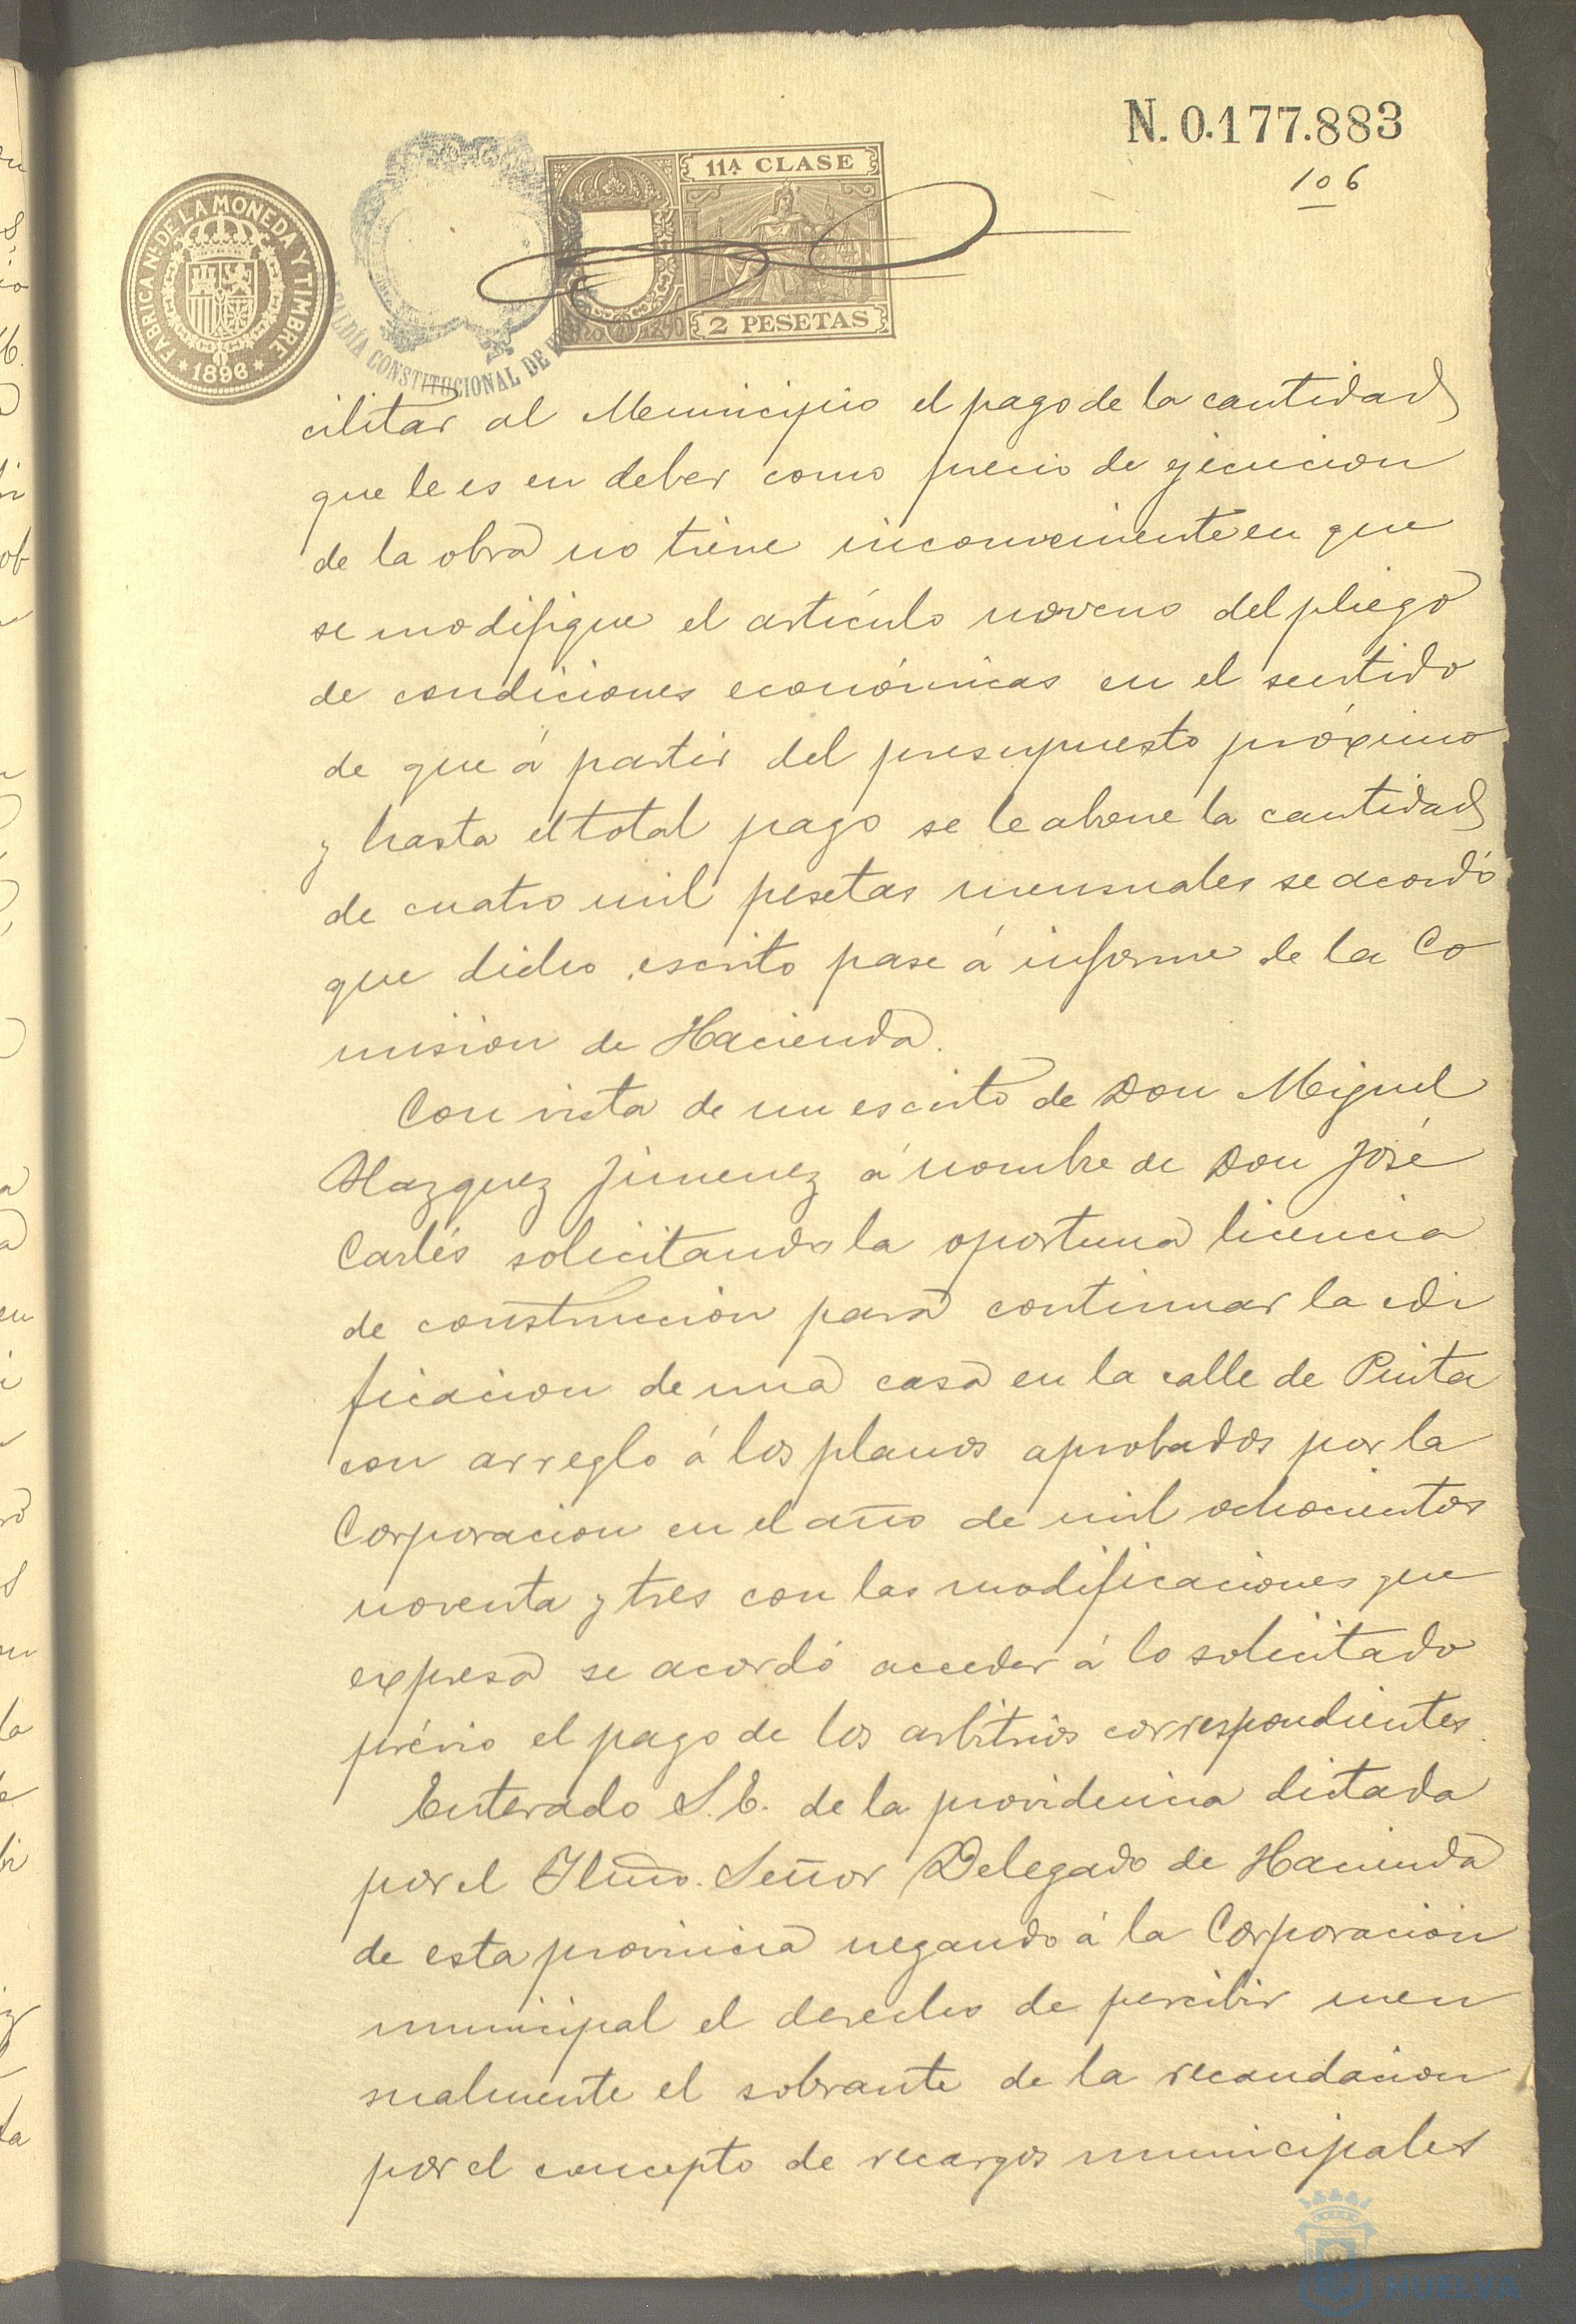 N. 0.177.883
106
11ª CLASE
2 PESETAS
FABRICA Nal DE LA MONEDA Y TIMBRE
1896
ALCALDÍA CONSTITUCIONAL DE
cilitar al Municipio el pago de la cantidad
que le es en deber como precio de ejecucion
de la obra no tiene inconveniente en que
se modifique el artículo noveno del pliego
de condiciones económicas en el sentido
de que á partir del presupuesto próximo
y hasta el total pago se le abone la cantidad
de cuatro mil pesetas mensuales se acordó
que dicho escrito pase á informe de la Co
mision de Hacienda.
Con vista de un escrito de Don Miguel
Vazquez Jimenez á nombre de Don José
Carlés solicitando la oportuna licencia
de construccion para continuar la edi
ficacion de una casa en la calle de Pinta
con arreglo á los planos aprobados por la
Corporacion en el año de mil ochocientos
noventa y tres con las modificaciones que
expresa se acordó acceder á lo solicitado
prévio el pago de los arbitrios correspondientes.
Enterado S. E. de la providencia dictada
por el Iltmo. Señor Delegado de Hacienda
de esta provincia negando á la Corporacion
municipal el derecho de percibir men
sualmente el sobrante de la recaudacion
por el concepto de recargos municipales
HUELVA